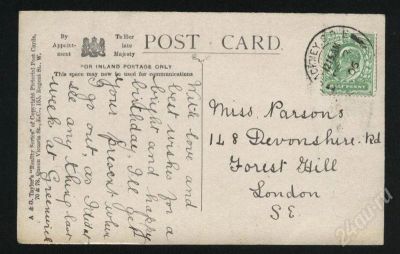 By
Appoint-
ment
To her
late
Majesty
POST CARD.
"FOR INLAND POSTAGE ONLY"
This space may now be used for communications
A. & G. Taylor's "Reality Series" of Copyright Pictorial Post Cards,
70 & 78, Queen Victoria St., E.C., 153, Regent St., W.
With love and
best wishes for a
bright and happy
birthday, I'll get
your present when
I go out as I didn't
see any thing last
week at Greenwich
Miss. Parsons
148 Devonshire. Rd
Forest Hill
London
S.E.
24au.ru